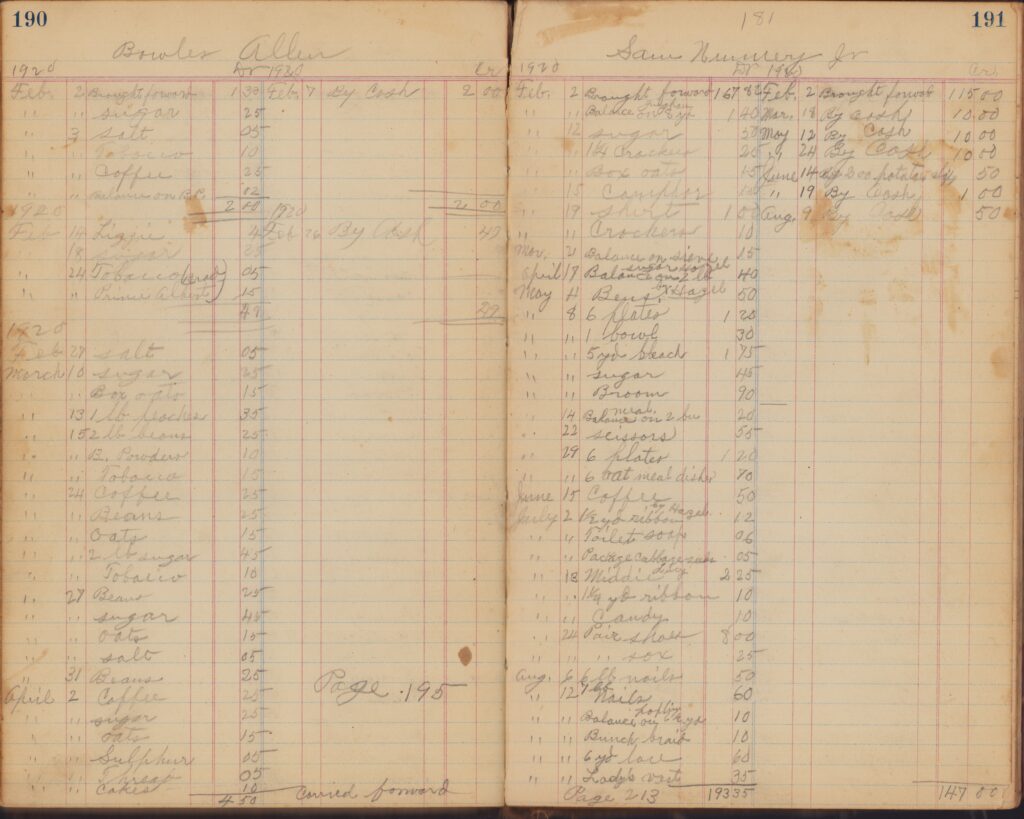 190
Bowler Allen
1920 Dr 1920 Cr
Feb. 2 Brought forward 1 33 Feb. 7 By Cash 2 00
" " sugar 25
" 3 salt 05
" " Tobacco 10
" " Coffee 25
" " Balance on B.P. 02
2 00 2 00
1920 1920
Feb 14 Lizzie 4 Feb 26 By Cash 49
" 18 sugar 25
" 24 Tobacco 05
" " Prince Albert 15
49 49
1920
Feb. 27 salt 05
March 10 sugar 25
" " Box oats 15
" 13 1 lb peaches 35
" 15 2 lb beans 25
" " B. Powders 10
" " Tobacco 15
" 24 Coffee 25
" " Beans 25
" " Oats 15
" " 2 lb sugar 45
" " Tobacco 10
" 27 Beans 25
" " sugar 45
" " oats 15
" " salt 05
" 31 Beans 25
April 2 Coffee 25 Page 195
" " sugar 25
" " oats 15
" " Sulphur 05
" " Thread 05
" " Cakes 10
4 50 Carried forward
181
191
Sam Nunnery Jr
1920 Dr 1920 Cr
Feb. 2 Brought forward 167 82 Feb. 2 Brought forward 115 00
" " Balance on gingham 1 40 Mar. 18 By Cash 10 00
" 12 sugar 50 May 12 By Cash 10 00
" " 1 lb Crackers 20 " 24 By Cash 10 00
" " box oats 15 June 14 potatoes 50
" 15 Camphor " 19 By Cash 1 00
" 19 shirt 1 00 Aug. 9 By Cash 50
" " Crackers 10
Mar. 2 Balance on 15
April 17 Balance on 2 lb sugar 40
May 4 by Hazel 50
" 8 6 plates 1 20
" " 1 bowl 30
" " 5 yd bleach 1 75
" " sugar 45
" " Broom 90
" 14 Balance on 2 bu meal 20
" 22 scissors 55
" 29 6 plates 1 20
" " 6 oat meal dishes 70
June 15 Coffee 50
July 2 1½ yd ribbon by Hazel 12
" " Toilet soap 06
" " Package Cabbage seeds 05
" 13 Middie 2 25
" " yd ribbon 10
" " Candy 10
" 24 Pair shoes 8 00
" " " sox 25
Aug. 6 6 lb nails 50
" 12 7 lb Nails 60
" " Balance on poplin 10
" " Bunch braid 10
" " 6 yd lace 60
" " Lady's vest 35
Page 213 193 35 147 00